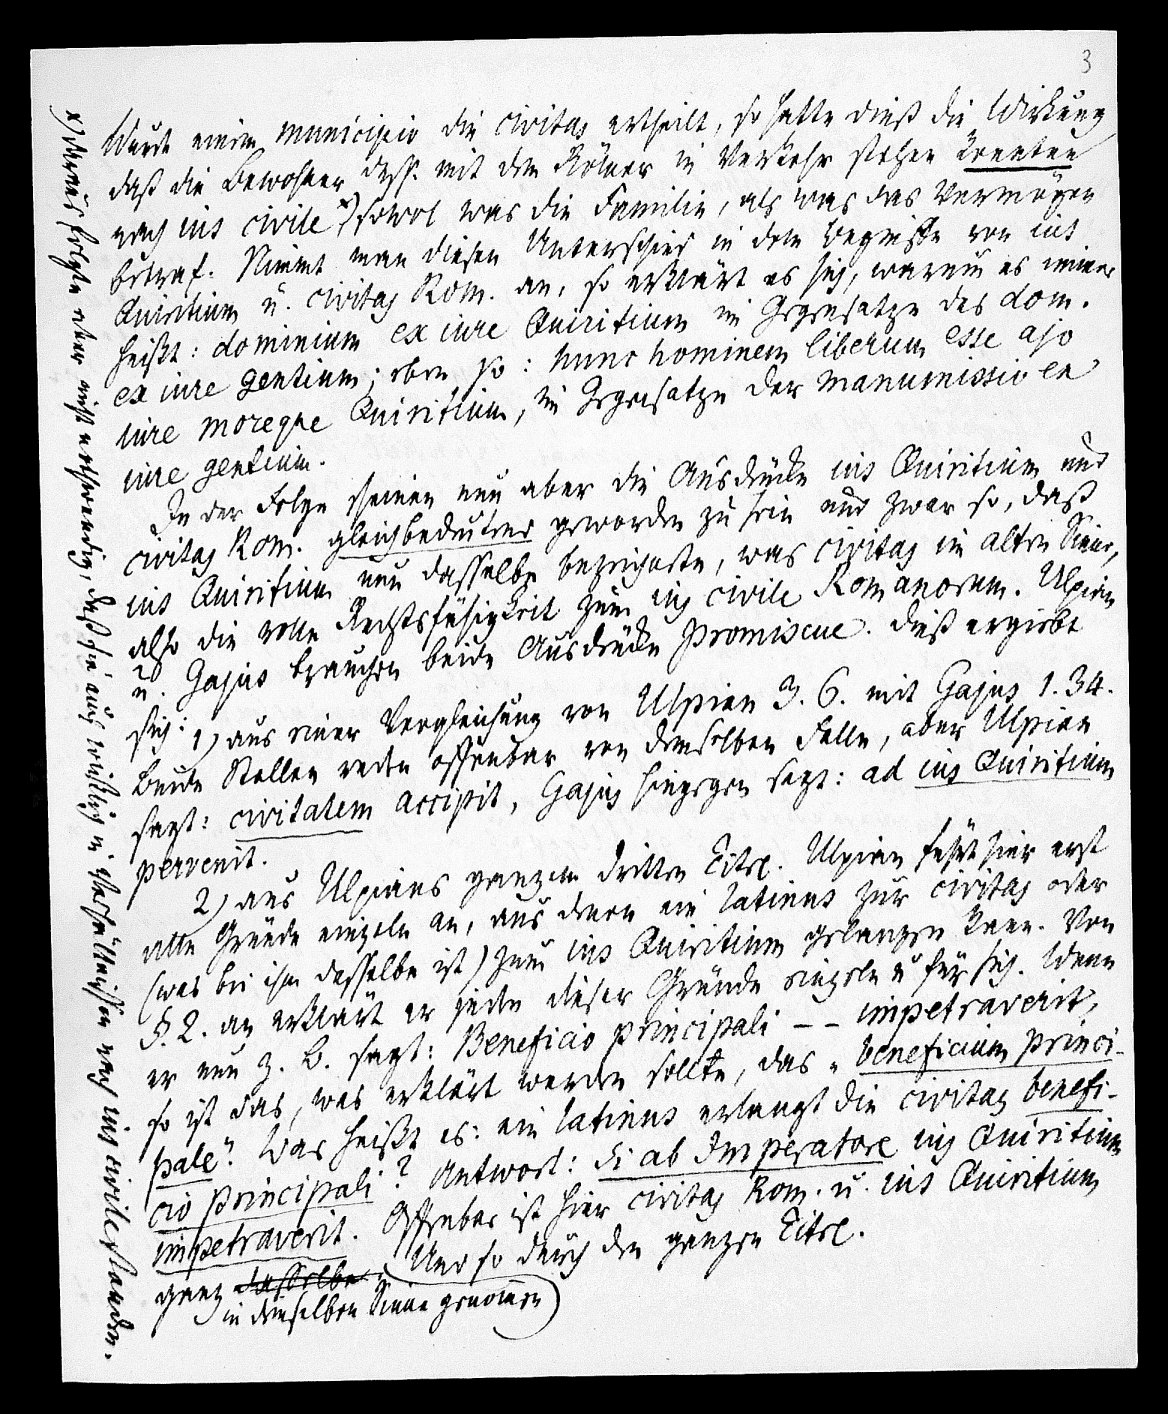 3
Wurde einem municipio die civitas ertheilt, so hatte dieß die Wirkung
daß die Bewohner dess. mit dem Römer in Verkehr stehen konnten
nach ius civile x) sowol was die Familie, als was das Vermögen
betraf. Nimmt man diesen Unterschied in dem Begriffe von ius
Quiritium u. civitas Rom. an, so erklärt es sich, warum es immer
heißt: dominium ex iure Quiritium im Gegensatze des dom.
ex iure gentium; eben so: hunc hominem liberum esse ajo
iure moreque Quiritium, im Gegensatze der manumissio ex
iure gentium.
In der Folge scheinen nun aber die Ausdrücke ius Quiritium und
civitas Rom. gleichbedeutend geworden zu sein und zwar so, daß
ius Quiritium nun dasselbe bezeichnete, was civitas im alten Sinne,
also die volle Rechtsfähigkeit zum ius civile Romanorum. Ulpian
u. Gajus brauchen beide Ausdrücke promiscue. Dieß ergiebt
sich: 1) aus einer Vergleichung von Ulpian 3. 6. mit Gajus 1. 34.
Beide Stellen reden offenbar von demselben Falle, aber Ulpian
sagt: civitatem accipit, Gajus hingegen sagt: ad ius Quiritium
pervenit.
2) aus Ulpians ganzem dritten Titel. Ulpian führt hier erst
alle Gründe einzeln an, aus denen ein Latinus zur civitas oder
(was bei ihm dasselbe ist) zum ius Quiritium gelangen kann. Von
§. 2. an erklärt er jeden dieser Gründe einzeln u für sich. Wenn
er nun z. B. sagt: Beneficio principali -- impetraverit,
so ist das, was erklärt werden sollte, das „beneficium princi-
pale“. Was heißt es: ein Latinus erlangt die civitas benefi-
cio principali? Antwort: si ab Imperatore ius Quiritium
impetraverit. Offenbar ist hier civitas Rom. u. ius Quiritium
ganz dasselbe. Und so durch den ganzen Titel.
in demselben Sinne genommen)
x) daraus folgte aber nicht nothwendig, daß sie auch wirklich in Verhältnissen nach ius civile standen.